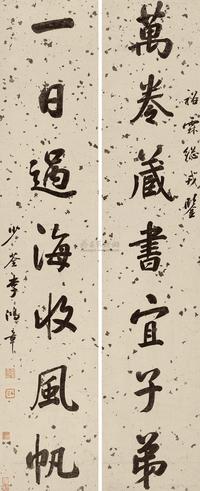 萬卷藏書宜子弟
霖總戎鑒
一日過海收風帆
少荃李鴻章